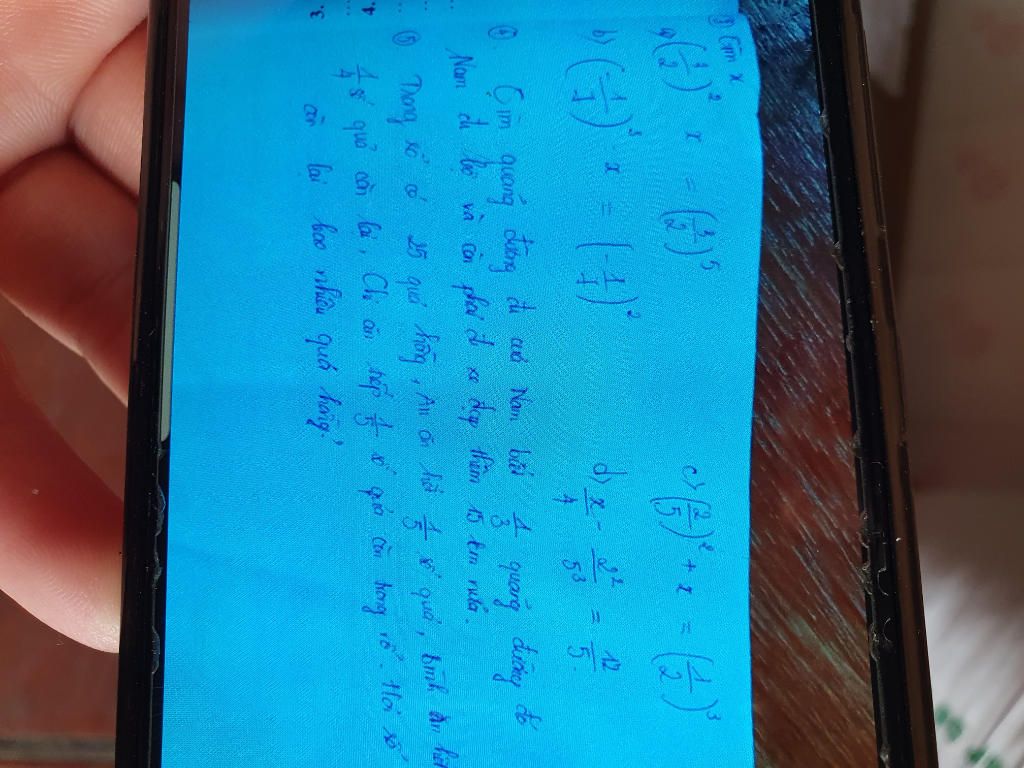 ③ Tìm x
a) (3/2)² x = (3/2)⁵
c) (2/5)² + x = (1/2)³
b) (-1/1)³ · x = (-1/1)²
d) x/4 - 2²/5³ = 12/5
④ Tìm quãng đường đi của Nam biết 1/3 quãng đường đó
Nam đi bộ và còn phải đi xe đạp thêm 15 km nữa.
⑤ Trong rổ có 25 quả hồng, An ăn hết 1/5 số quả, Bình ăn hết
1/4 số quả còn lại, Chi ăn tiếp 1/5 số quả còn trong rổ. Hỏi rổ
còn lại bao nhiêu quả hồng?
4.
3.